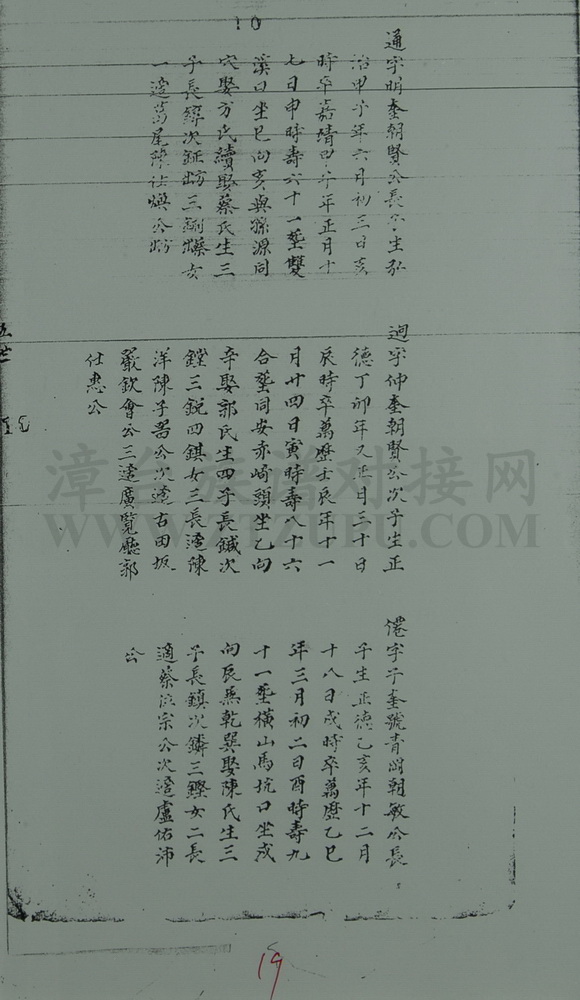 10
通字明奎朝賢公長子生弘
治甲子年六月初三日亥
時卒嘉靖甲子年正月十
七日申時壽六十一塟雙
溪口坐巳向亥與孫源同
穴娶方氏續娶蔡氏生三
子長鏵次鉦三女
一適萬尾陳仕煥公
逈字仲奎朝賢公次子生正
德丁卯年又正月三十日
辰時卒萬曆壬辰年十一
月廿四日寅時壽八十六
合塟同安赤崎頭坐乙向
辛娶郭氏生四子長鋮次
鏜三銳四錤女三長適陳
洋陳子器公次適古田坂
嚴欽會公三適廣覧廳郭
仕悫公
僊字子奎號青岡朝敏公長
子生正德乙亥年十二月
十八日戌時卒萬曆乙巳
年三月初二日酉時壽九
十一塟橫山馬坑口坐戌
向辰兼乾巽娶陳氏生三
子長鎮次鏻三鏗女二長
適蔡宗公次適盧佑沛
公
五世
漳台族谱对接网
19